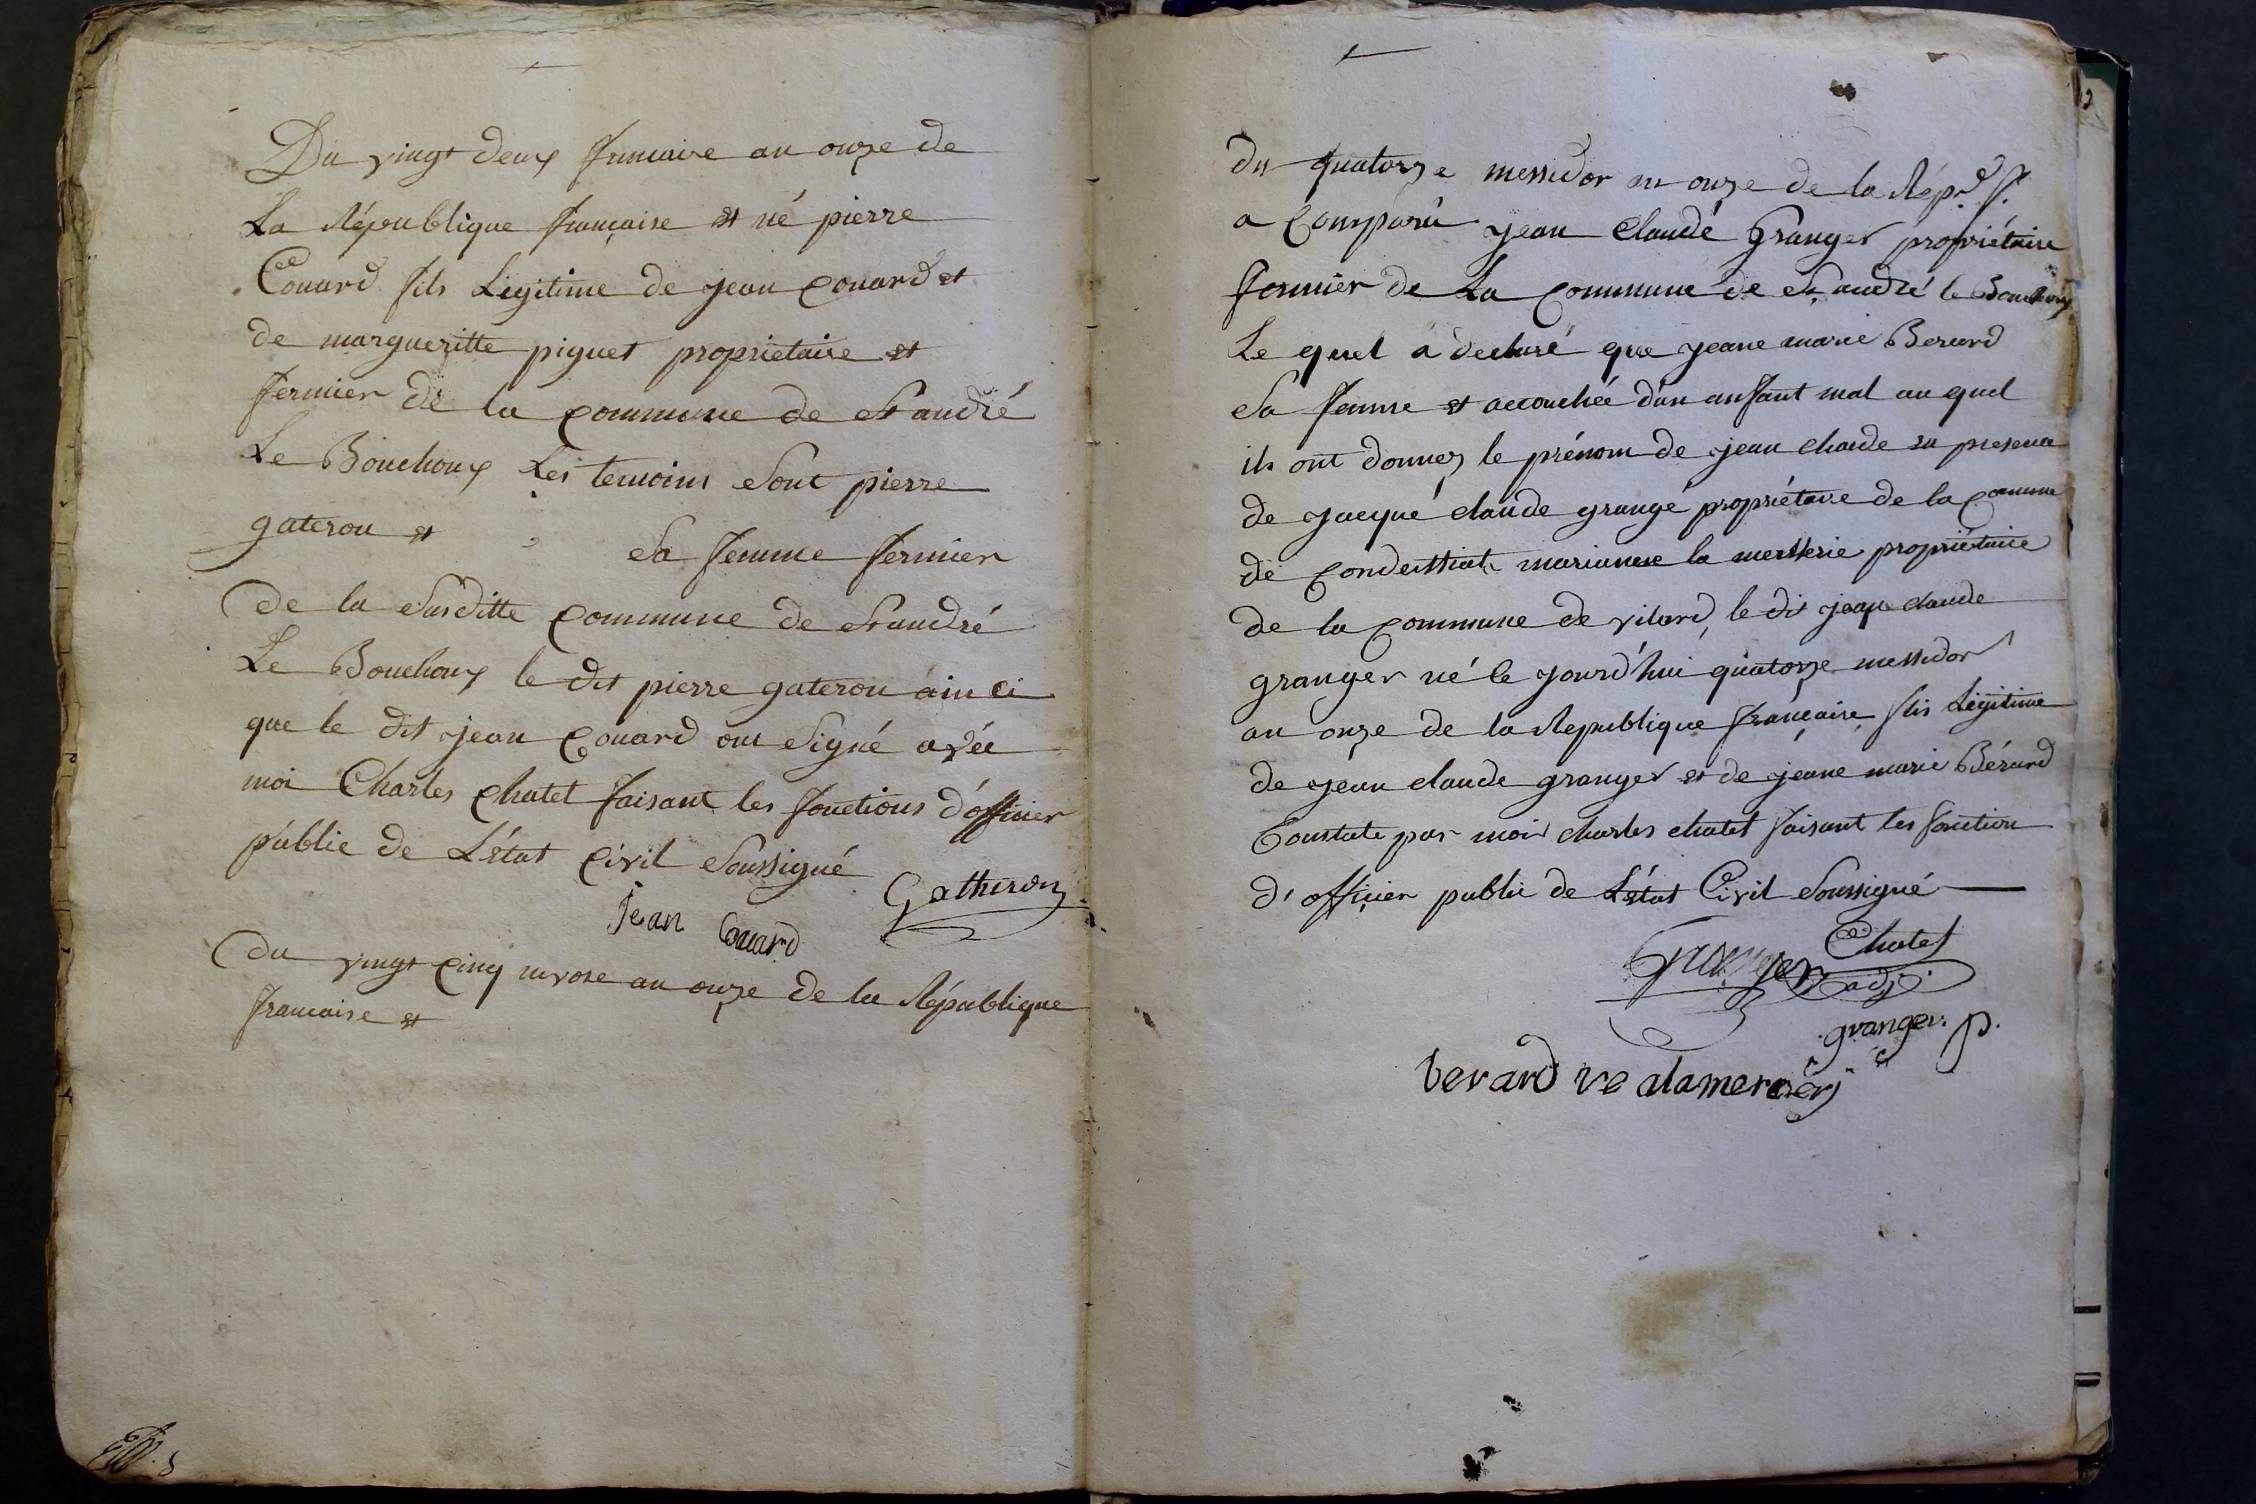 Du vingt deux frimaire an onze de
La République française est né pierre
Couard fils Légitime de jean Couard et
de margueritte piguet propriétaire et
fermier de la commune de St andré
Le Bouchoux Les temoins Sont pierre
gateron et sa femme fermier
de la susditte commune de St andré
Le Bouchoux le dit pierre gateron ainci
que le dit jean Couard ont signé avec
moi Charles chatel faisant les fonctions d'officier
public de L'état civil Soussigné
Jean Couard Gatheron
du vingt cinq nivose an onze de la République
francaise est
du quatorze messidor an onze de la Répe. f.
a Comparu jean Claude Granger propriétaire
fermier de La commune de St andré le Bouchoux
Le quel a déclaré que jeane marie Berard
Sa femme est accouchée d'un anfant mal au quel
ils ont donnez le prénom de jean claude en presence
de jacque claude grangé propriétaire de la comune
de condeissiat marianne la mersserie propriétaire
de la commune de vilard, le dit jean claude
granger né le jourd'hui quatorze messidor
an onze de la Republique française fils Légitime
de jean claude granger et de jeane marie Bérard
Constate par moi charles chatel faisant les fonction
d'officier public de L'état Civil Soussigné
Granger Chatel
adj
granger. p.
berard ve alamercerj